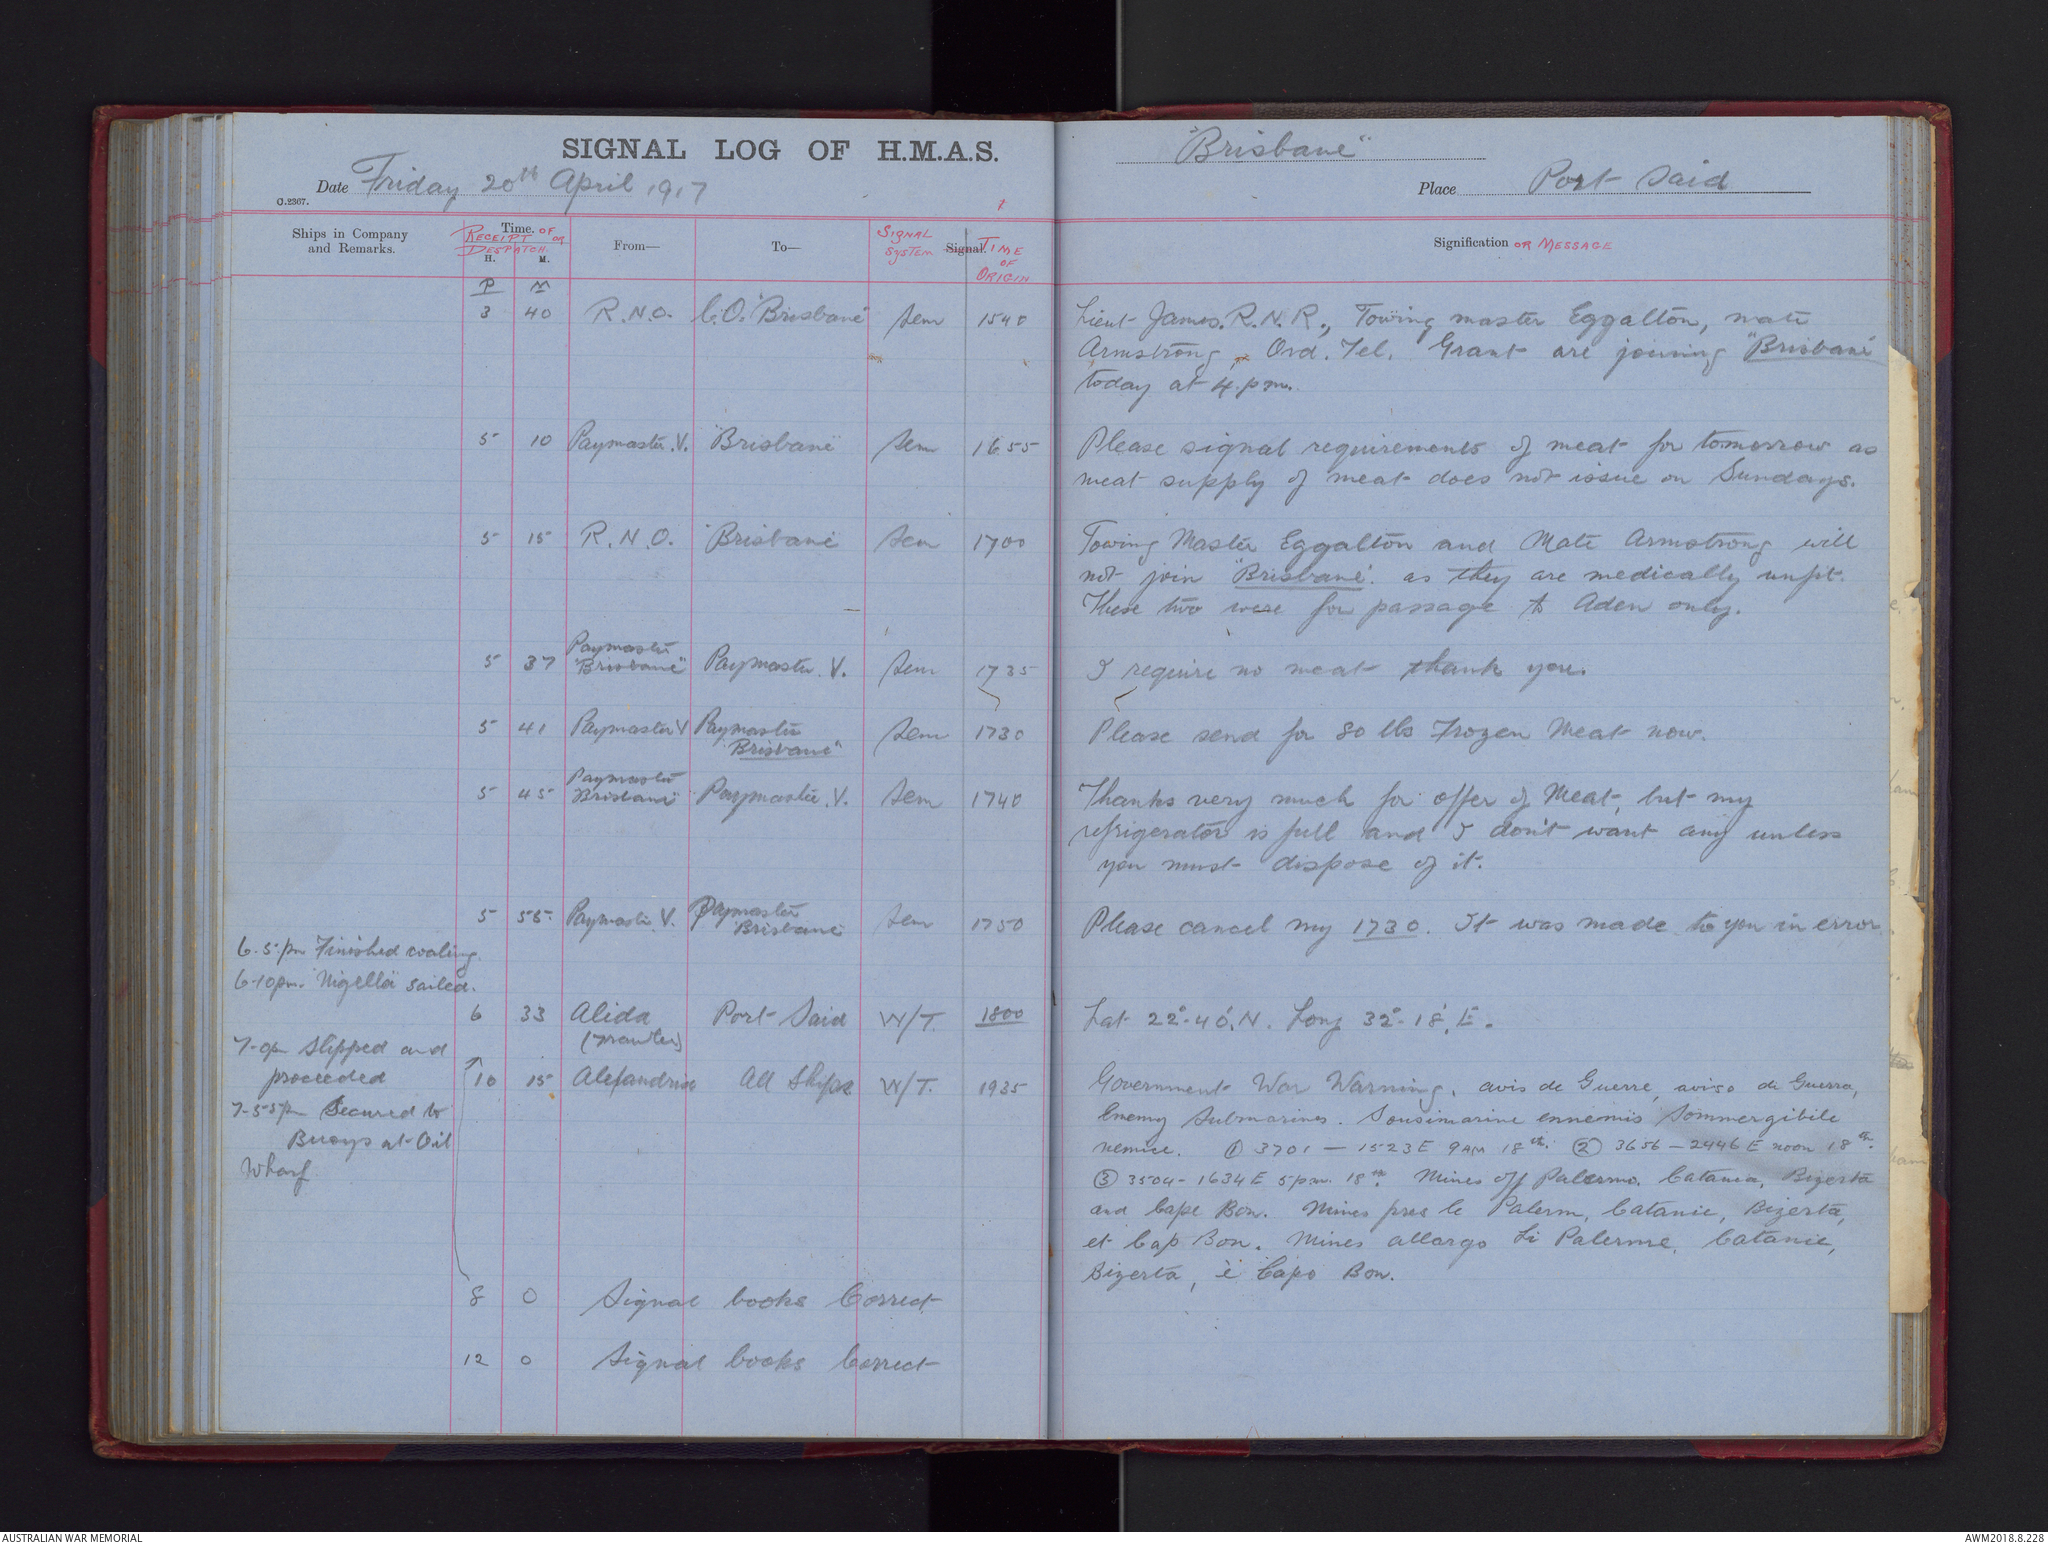 SIGNAL LOG OF H.M.A.S. "Brisbane"
Date Friday 20th April 1917 Place Port Said
O.2367.
Ships in Company and Remarks. Time. OF RECEIPT OR DESPATCH. H. M. From— To— SIGNAL SYSTEM Signal. TIME OF ORIGIN Signification OR MESSAGE
P M
3 40 R.N.O. C.O. "Brisbane" Sem 1540 Lieut James. R.N.R., Towing master Eggalton, mate
Armstrong, Ord. Tel. Grant are joining "Brisbane"
today at 4.pm.
5 10 Paymaster.V. "Brisbane" Sem 1655 Please signal requirements of meat for tomorrow as
meat supply of meat does not issue on Sundays.
5 15 R.N.O. "Brisbane" Sem 1700 Towing Master Eggalton and Mate Armstrong will
not join "Brisbane". as they are medically unfit.
These two were for passage to Aden only.
5 37 Paymaster "Brisbane" Paymaster. V. Sem 1735 I require no meat thank you.
5 41 Paymaster V Paymaster "Brisbane" Sem 1730 Please send for 80 lbs Frozen Meat now.
5 45 Paymaster "Brisbane" Paymaster. V. Sem 1740 Thanks very much for offer of Meat, but my
refrigerator is full and I don't want any unless
you must dispose of it.
5 55. Paymaster. V. Paymaster Brisbane Sem 1750 Please cancel my 1730. It was made to you in error.
6.5.pm Finished coaling.
6-10pm. "Nigella" sailed.
6 33 Alida (Trawler) Port Said W/T. 1800 Lat 22°-40'.N. Long 32°-18'.E.
7-0pm Slipped and
proceeded
10 15 Alexandria All Ships W/T. 1935 Government War Warning, avis de Guerre, aviso di Guerra,
7-55pm Secured to
Buoys at Oil
Wharf
Enemy Submarines. Sousimarine ennemis Sommergibile
nemice. ① 3701 — 1523E 9AM 18th. ② 3656 — 2446E noon 18th.
③ 3504 - 1634E 5pm. 18th. Mines off Palermo. Catania, Bizerta
and Cape Bon. Mines pres le Palerm, Catanie, Bizerta,
et Cap Bon. Mines allargo Li Palerme, Catanie,
Bizerta, è Capo Bon.
8 0 Signal books Correct
12 0 Signal books Correct
AUSTRALIAN WAR MEMORIAL
AWM2018.8.228